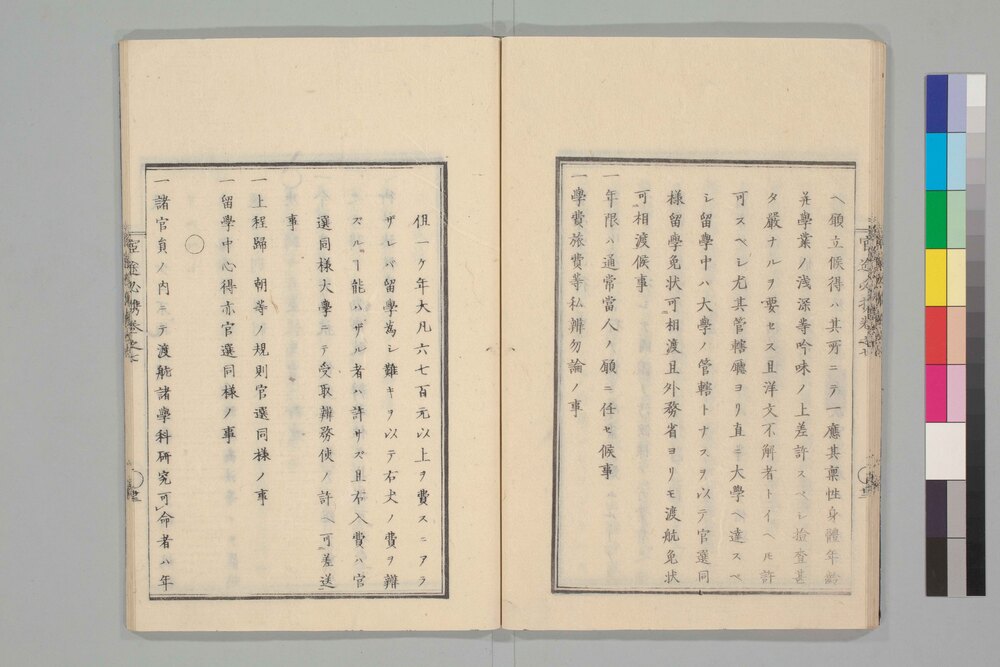 ヘ願立候得ハ其所ニテ一應其稟性身體年齡
并學業ノ浅深等吟味ノ上差許スベシ撿査甚
タ嚴ナルヲ要セス且洋文不解者トイヘ𪜈許
可スベシ尤其管轄廳ヨリ直ニ大學ヘ達スベ
シ留學中ハ大學ノ管轄トナスヲ以テ官選同
様留學免状可相渡且外務省ヨリモ渡航免状
可相渡候事
一年限ハ通常當人ノ願ニ任セ候事
一學費旅費等私辨勿論ノ事
但一ケ年大凡六七百元以上ヲ費スニアラ
ザレバ留學為シ難キヲ以テ右丈ノ費ヲ辨
ズルヿ能ハザル者ハ許サズ且右入費ハ官
選同様大學ニテ受取辨務使ノ許ヘ可差送
事
一上程歸 朝等ノ規則官選同様ノ事
一留學中心得亦官選同様ノ事
○
一諸官員ノ内ニテ渡航諸學科研究可命者ハ年
官途必携巻之七